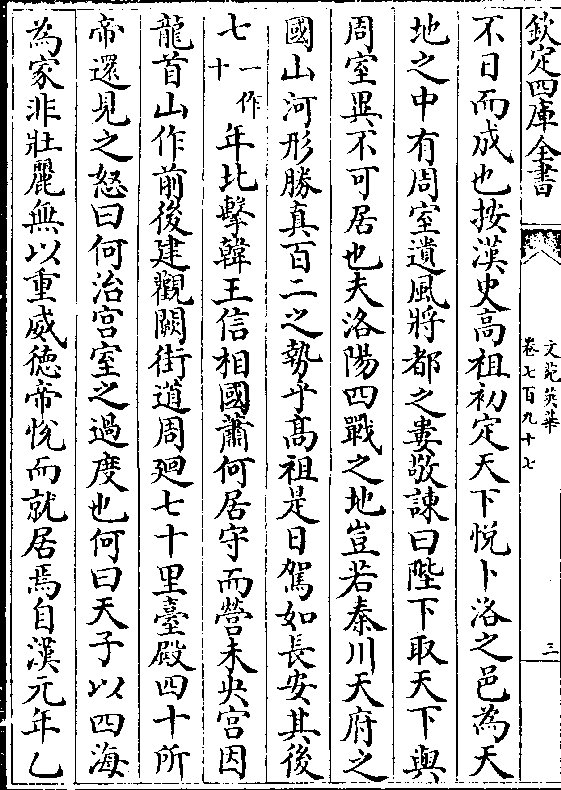 欽定四庫全書
文苑英華
卷七百九十七
三
不日而成也按漢史高祖初定天下悅卜洛之邑為天
地之中有周室遺風將都之婁敬諫曰陛下取天下與
周室異不可居也夫洛陽四戰之地豈若秦川天府之
國山河形勝真百二之勢乎髙祖是日駕如長安其後
七一作十年北擊韓王信相國蕭何居守而營未央宫因
龍首山作前後建觀闕街道周廻七十里臺殿四十所
帝還見之怒曰何治宫室之過度也何曰天子以四海
為家非壯麗無以重威徳帝悅而就居焉自漢元年乙